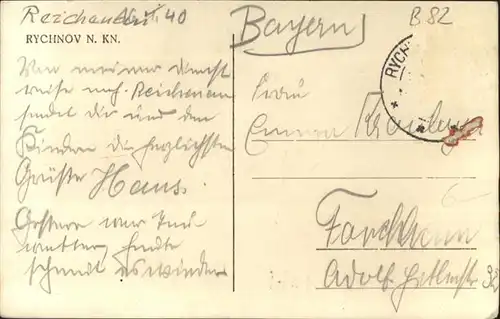 Reichenau 40
RYCHNOV N. KN.
Bayern
B 82
RYCH
Von meiner Dienst
reise nach Reichenau
sendet dir und den
Kindern die herzlichsten
Grüße Hans.
Gestern war Tau
wetter, heute
schneit es wieder
Frau
Emma
Forchheim
Adolf Hitlerstr 32